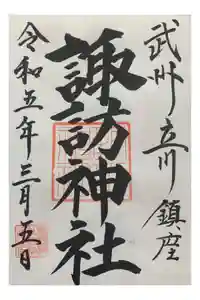 武州立川鎮座
諏訪神社
令和五年三月五日